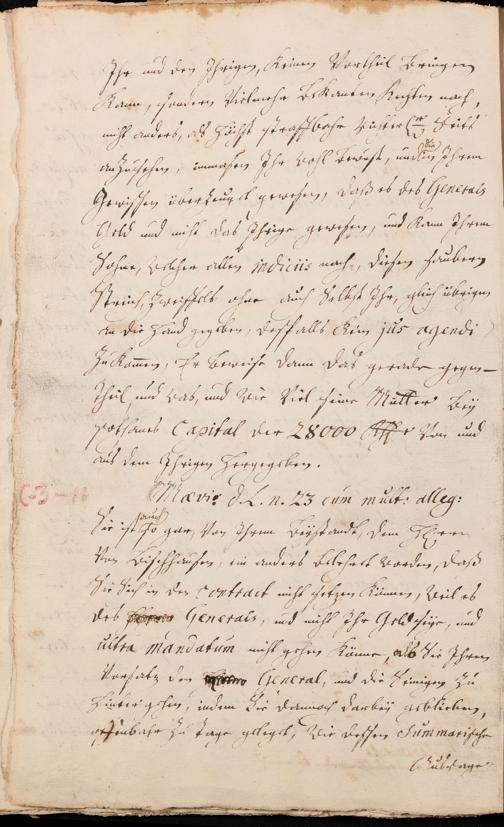 Ihr und den Ihrigen, keinen Vortheil bringen
kann, sondern vielmehr bekanten Rechten nach,
nicht anders, als höchst straffbahr
anzusehen, immaßen Ihr wohl bewust, und in Ihrem
Gewissen überzeuget gewesen, daß es des Generals
Geld und nicht das Ihrige gewesen, und kann Ihrem
Sohne, welcher allen indiciis nach, diesen saubern
Streich, zweiffels ohne auch selbst Ihr, gleich übrigen
an die Hand gegeben, dessfalls kein jus agendi
zukommen, Er beweise dann das gerade gegen-
theil und was, und wie viel seine Mutter bey
Capital der 28000 von und
aus dem Ihrigen hergegeben.
Mævio d. L. n. 23 cum mult: alleg:
Sie ist auch so gar, von Ihrem Beystande, dem Herrn
von Bischhausen, ein anders belehret worden, daß
Sie Sich in den Contract nicht setzen könne, weil es
des Generals, und nicht Ihr Geld seye, und
ultra mandatum nicht gehen könne, als Sie Ihren
Vorsatz den General, und die Seinigen zu
hintergehen, indem Sie dennoch darbey geblieben,
offenbahr zu tage geleget, wie dessen Summarische
Aussage